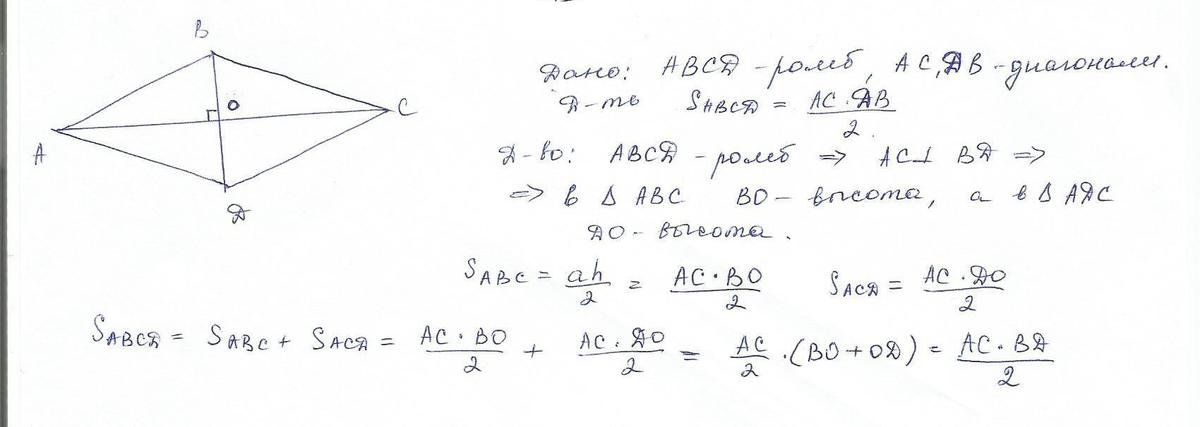 B
O
C
A
D
Дано: ABCD - ромб, AC, DB - диагонали.
Д-ть S_ABCD = AC · DB / 2.
Д-во: ABCD - ромб => AC ⊥ BD =>
=> в Δ ABC BO - высота, а в Δ ADC
DO - высота.
S_ABC = ah / 2 = AC · BO / 2 S_ACD = AC · DO / 2
S_ABCD = S_ABC + S_ACD = AC · BO / 2 + AC · DO / 2 = AC / 2 · (BO + OD) = AC · BD / 2